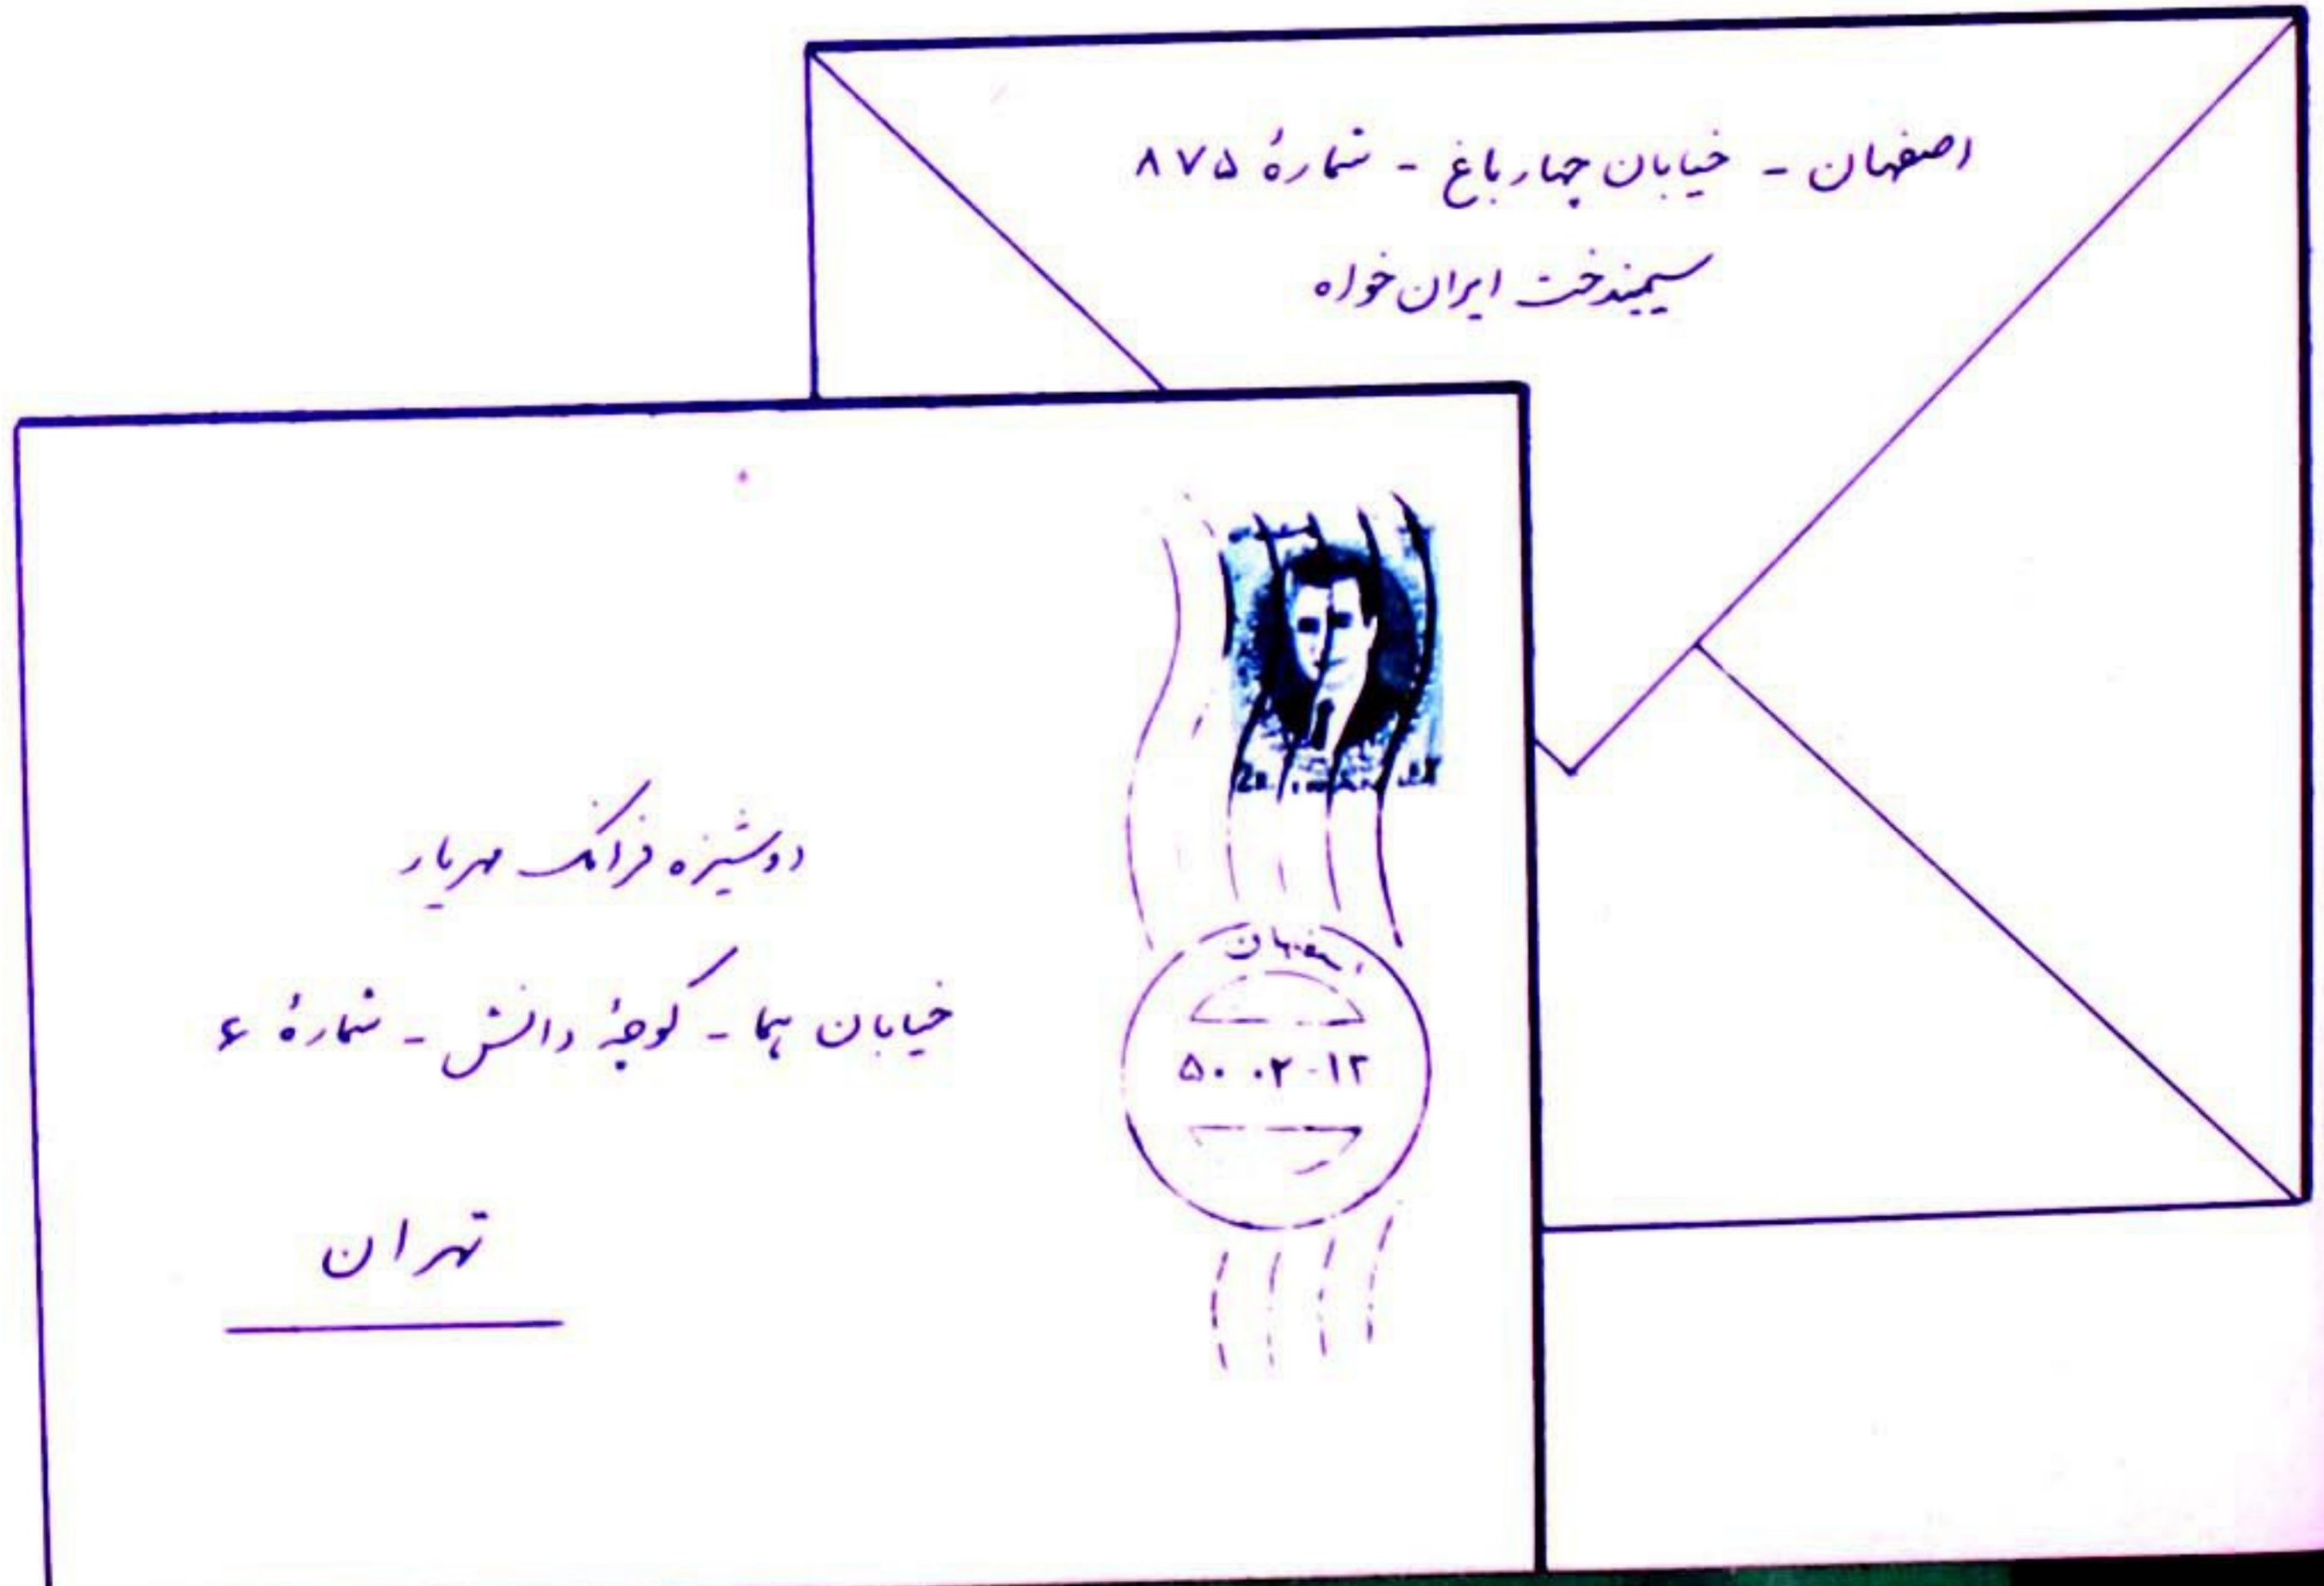 اصفهان - خیابان چهارباغ - شمارهٔ ۸۷۵
سیمیندخت ایران خواه
دوشیزه فرانک مهریار
خیابان هما - کوچهٔ دانش - شمارهٔ ۶
تهران
اصفهان
۵۰ ۰۲-۱۲